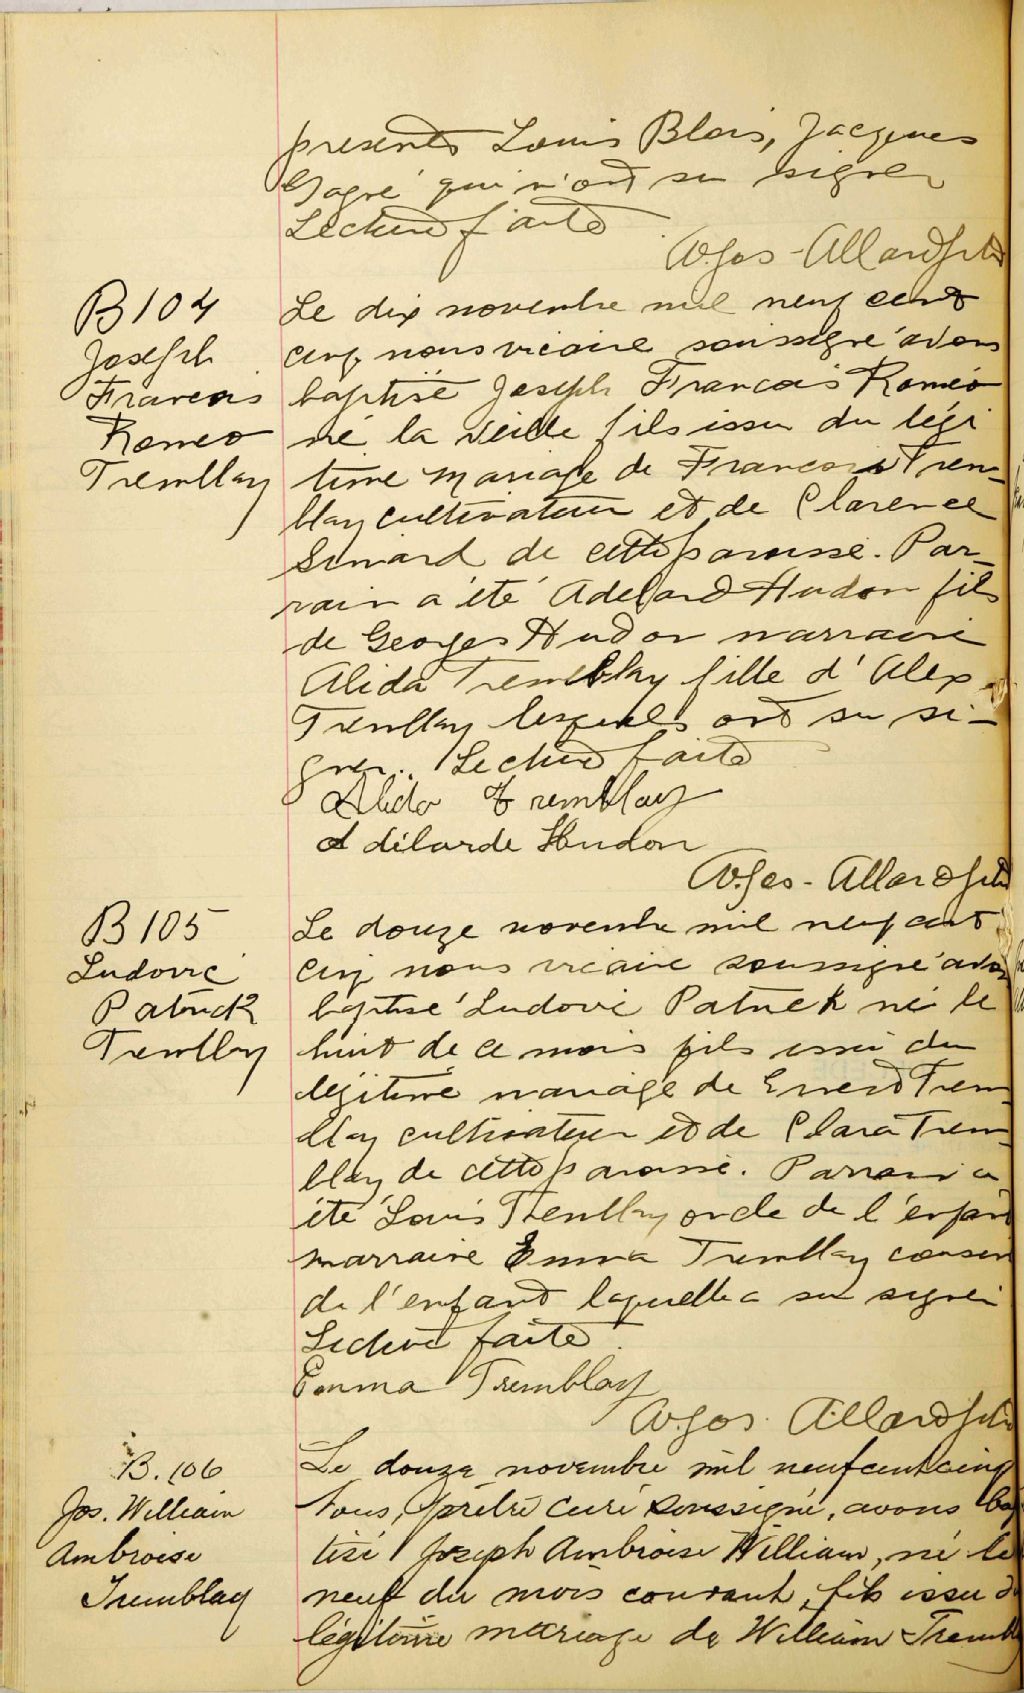 presents Louis Blais, Jacques
Gagné qui n'ont su signer
Lecture faite
Jos-Allard ptre
B 104
Joseph
Francois
Romeo
Tremblay
Le dix novembre mil neuf cent
cinq nous vicaire soussigné avons
baptisé Joseph Francois Roméo
né la veille fils issu du légi
time mariage de Francois Trem-
blay cultivateur et de Clarence
Simard de cette paroisse. Par-
rain a été Adelard Hudon fils
de Georges Hudon marraine
Alida Tremblay fille d'Alex
Tremblay lesquels ont su si-
gner.. Lecture faite
Alida Tremblay
Adélarde Hudon
Jos-Allard ptre
B 105
Ludovic
Patrick
Tremblay
Le douze novembre mil neuf cent
cinq nous vicaire soussigné avons
baptisé Ludovic Patrick né le
huit de ce mois fils issu du
légitime mariage de Ernest Trem
blay cultivateur et de Clara Trem-
blay de cette paroisse. Parrain a
été Louis Tremblay oncle de l'enfant
marraine Emma Tremblay cousine
de l'enfant laquelle a su signer
Lecture faite.
Emma Tremblay
Jos. Allard ptre
B. 106
Jos. William
Ambroise
Tremblay
Le douze novembre mil neuf cent cinq
Nous, prêtre curé soussigné, avons bap
tisé Joseph Ambroise William, né le
neuf du mois courant, fils issu du
légitime mariage de William Tremblay